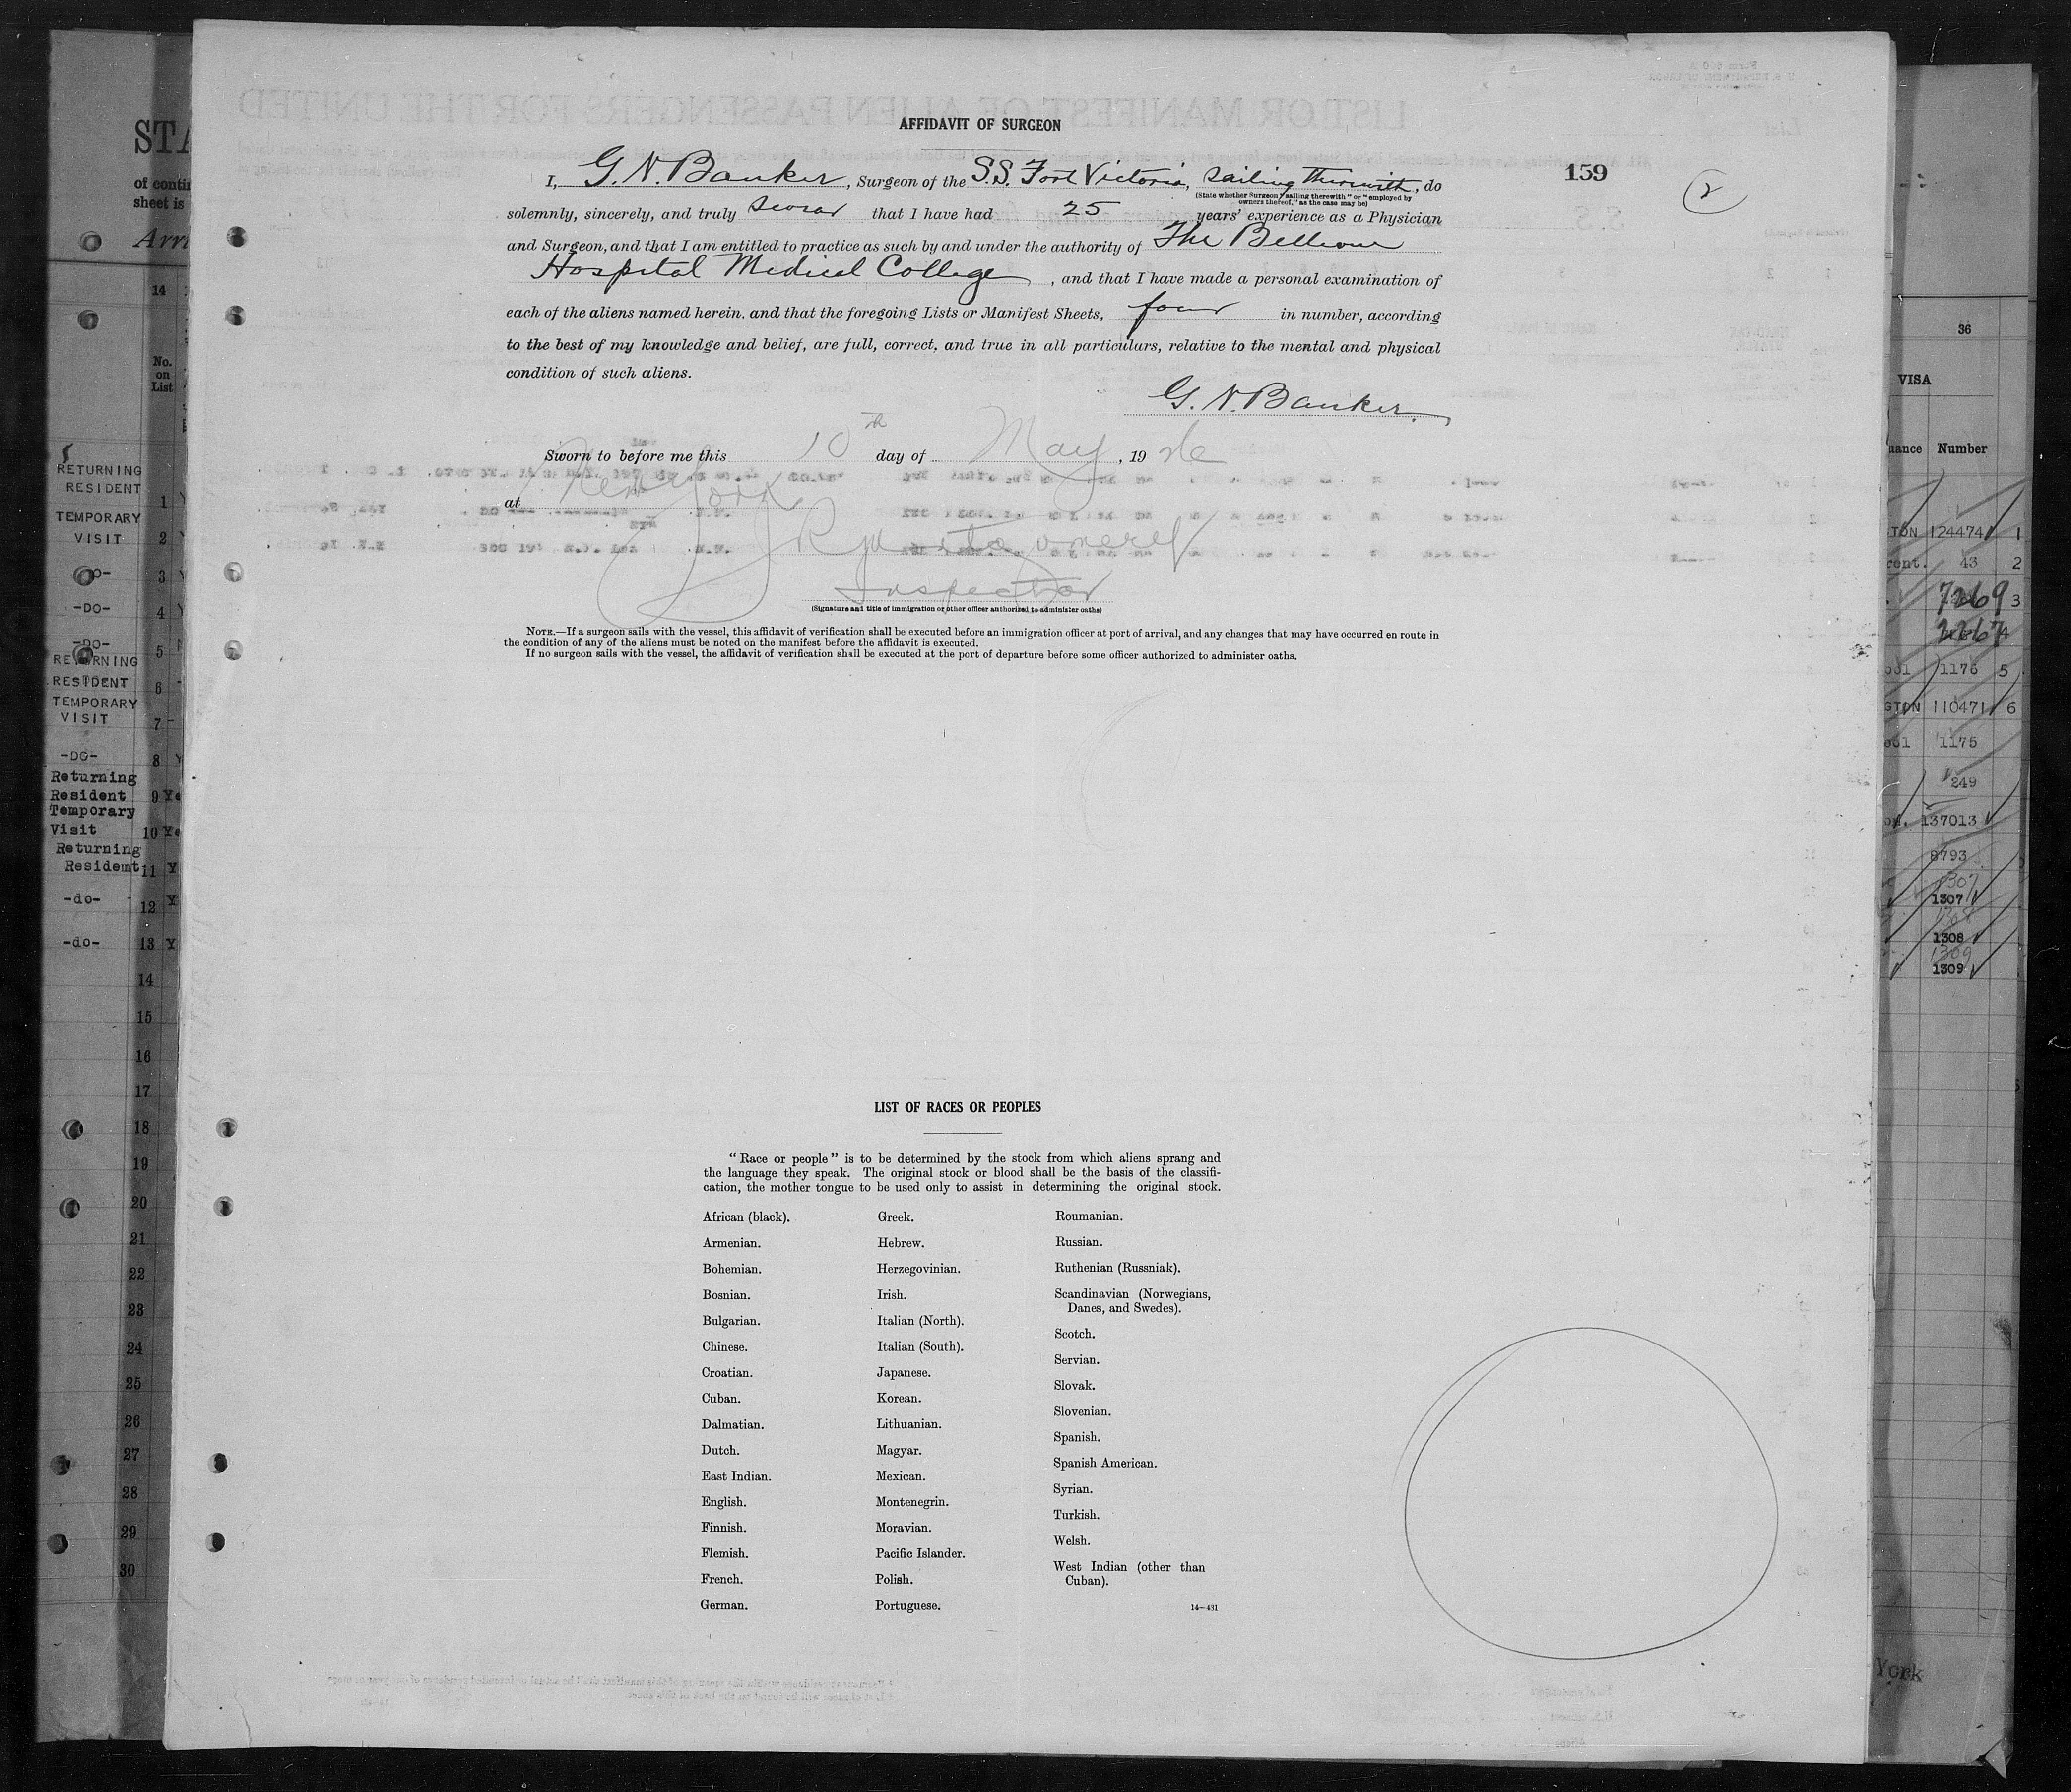 AFFIDAVIT OF SURGEON
159
2
I, G. N. Banker, Surgeon of the S.S. Fort Victoria, Sailing Therewith, do
(State whether Surgeon "sailing therewith" or "employed by
owners thereof," as the case may be)
solemnly, sincerely, and truly swear that I have had 25 years' experience as a Physician
and Surgeon, and that I am entitled to practice as such by and under the authority of The Bellevue
Hospital Medical College, and that I have made a personal examination of
each of the aliens named herein, and that the foregoing Lists or Manifest Sheets, four in number, according
to the best of my knowledge and belief, are full, correct, and true in all particulars, relative to the mental and physical
condition of such aliens.
G. N. Banker
Sworn to before me this 10th day of May, 1926
at New York
Inspector
(Signature and title of immigration or other officer authorized to administer oaths)
NOTE.—If a surgeon sails with the vessel, this affidavit of verification shall be executed before an immigration officer at port of arrival, and any changes that may have occurred en route in
the condition of any of the aliens must be noted on the manifest before the affidavit is executed.
If no surgeon sails with the vessel, the affidavit of verification shall be executed at the port of departure before some officer authorized to administer oaths.
LIST OF RACES OR PEOPLES
"Race or people" is to be determined by the stock from which aliens sprang and
the language they speak. The original stock or blood shall be the basis of the classifi-
cation, the mother tongue to be used only to assist in determining the original stock.
African (black).
Armenian.
Bohemian.
Bosnian.
Bulgarian.
Chinese.
Croatian.
Cuban.
Dalmatian.
Dutch.
East Indian.
English.
Finnish.
Flemish.
French.
German.
Greek.
Hebrew.
Herzegovinian.
Irish.
Italian (North).
Italian (South).
Japanese.
Korean.
Lithuanian.
Magyar.
Mexican.
Montenegrin.
Moravian.
Pacific Islander.
Polish.
Portuguese.
Roumanian.
Russian.
Ruthenian (Russniak).
Scandinavian (Norwegians,
Danes, and Swedes).
Scotch.
Servian.
Slovak.
Slovenian.
Spanish.
Spanish American.
Syrian.
Turkish.
Welsh.
West Indian (other than
Cuban).
14—431
STA
of conti
sheet is
Arri
14
No.
on
List
RETURNING
RESIDENT 1
TEMPORARY
VISIT 2
-DO- 3
-DO- 4
-DO- 5
RETURNING
RESIDENT 6
TEMPORARY
VISIT 7
-DO- 8
Returning
Resident 9 Ye
Temporary
Visit 10 Ye
Returning
Residemt 11 Y
-do- 12 Y
-do- 13 Y
14
15
16
17
18
19
20
21
22
23
24
25
26
27
28
29
30
36
VISA
uance Number
TON 124474 1
ront. 43 2
7269 3
2267 4
ool 1176 5
GTON 110471 6
ool 1175
249
on. 137013
8793
1307
1307
1308
1308
1309
1309
York